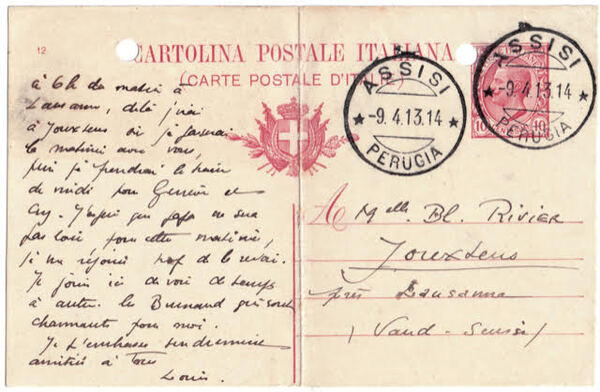 12
CARTOLINA POSTALE ITALIANA
(CARTE POSTALE D'ITALIE)
ASSISI
-9.4.13.14
PERUGIA
ASSISI
-9.4.13.14
PERUGIA
10 10
à 6h du matin à
Lausanne, delà j'irai
à Jouxtens où je passerai
la matinée avec vous,
puis je prendrai le train
de midi pour Genève et
. J'espère que papa ne sera
pas loin pour cette matinée,
je me réjouis de le revoir.
Je joins ici
à . Les Burnand
charmants pour moi.
Je t'embrasse
amitiés à Tous
Louis.
A Mlle. Bl. Rivier
Jouxtens
près Lausanne
(Vaud-Suisse)